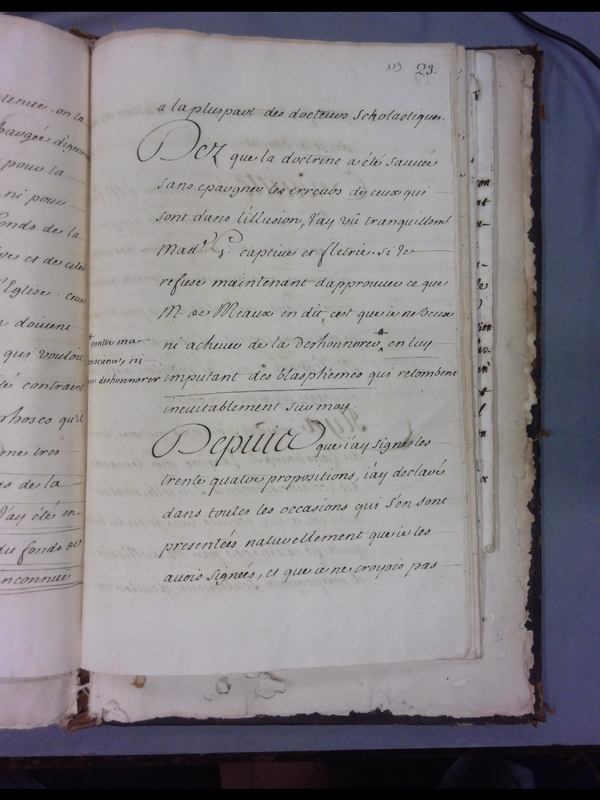 tenue. on la
pour la
ni pour
fonds de la
l'Eglise. ceux
doivent
qui vouloi
contraint
choses qu'il
me tres
es de la
J'ay été en
du fonds de
inconnuë
119 23.
a la pluspart des docteurs scholastiques.
Dez que la doctrine a été sauveé
sans epargner les erreurs de ceux qui
sont dans l'illusion, J'ay vû tranquillemt
Made G. captive et fletrie. si Je
refuse maintenant d'approuver ce que
Mr. de Meaux en dit, c'est que ie ne veux
ni achever de la deshonnorer, + en luy
imputant des blasphêmes qui retombent
inevitablement sur moy.
+ contre ma
conscience, ni
me deshonnorer
Depuis que i'ay signé les
trente quatre propositions, i'ay declaré
dans toutes les occasions qui s'en sont
presentées naturellement que ie les
avois signées, et que ie ne croyois pas